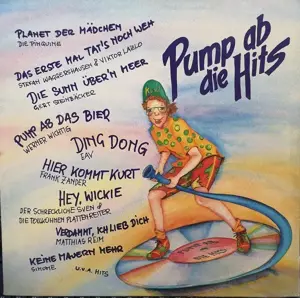 PLANET DER MÄDCHEN
DIE PINGUINE
DAS ERSTE MAL TAT'S NOCH WEH
STEFAN WAGGERSHAUSEN & VIKTOR LAZLO
DIE SUNN ÜBER'N MEER
GERT STEINBÄCKER
PUMP AB DAS BIER
WERNER WICHTIG
DING DONG
EAV
HIER KOMMT KURT
FRANK ZANDER
HEY, WICKIE
DER SCHRECKLICHE SVEN &
DIE TOLLKÜHNEN PLATTENREITER
VERDAMMT, ICH LIEB DICH
MATTHIAS REIM
KEINE MAUERN MEHR
SIMONE
U.V.A. HITS
Pump ab
die Hits